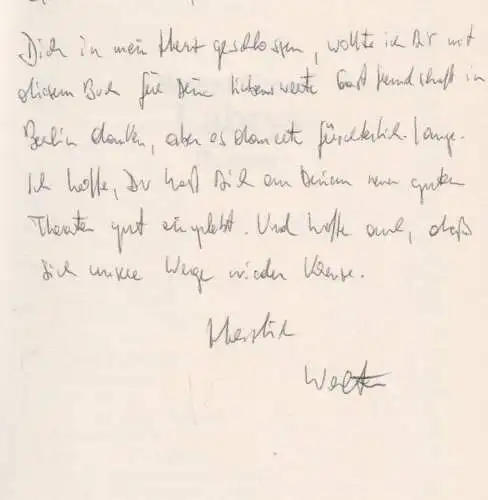 Dich in mein Herz geschlossen, wollte ich Dir mit
diesem Buch für Deine liebenswerte Gastfreundschaft in
Berlin danken, aber es dauerte fürchterlich lange.
Ich hoffe, Du hast Dich an Deinem neuen guten
Theater gut eingelebt. Und hoffe auch, daß
sich unsere Wege wieder kreuze.
Herzlich
Walter